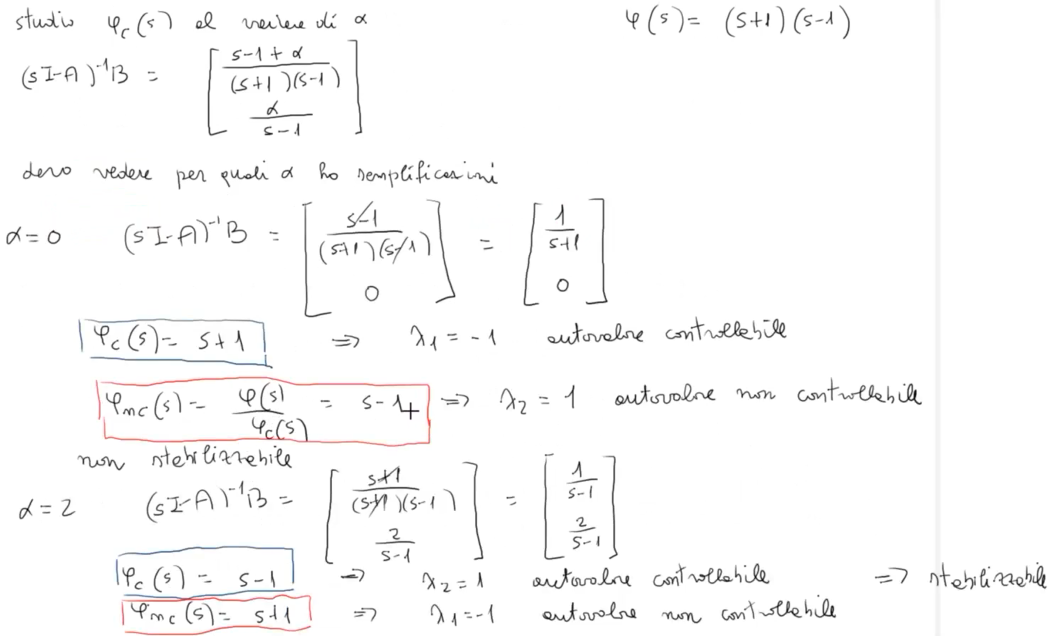 studio φc(s) al variare di α
φ(s) = (s+1)(s-1)
(sI-A)⁻¹B = [ (s-1+α)/((s+1)(s-1)) ; α/(s-1) ]
devo vedere per quali α ho semplificazioni
α=0 (sI-A)⁻¹B = [ (s-1)/((s+1)(s-1)) ; 0 ] = [ 1/(s+1) ; 0 ]
φc(s) = s+1 ⇒ λ1 = -1 autovalore controllabile
φnc(s) = φ(s)/φc(s) = s-1 ⇒ λ2 = 1 autovalore non controllabile
non stabilizzabile
α=2 (sI-A)⁻¹B = [ (s+1)/((s+1)(s-1)) ; 2/(s-1) ] = [ 1/(s-1) ; 2/(s-1) ]
φc(s) = s-1 ⇒ λ2 = 1 autovalore controllabile ⇒ stabilizzabile
φnc(s) = s+1 ⇒ λ1 = -1 autovalore non controllabile